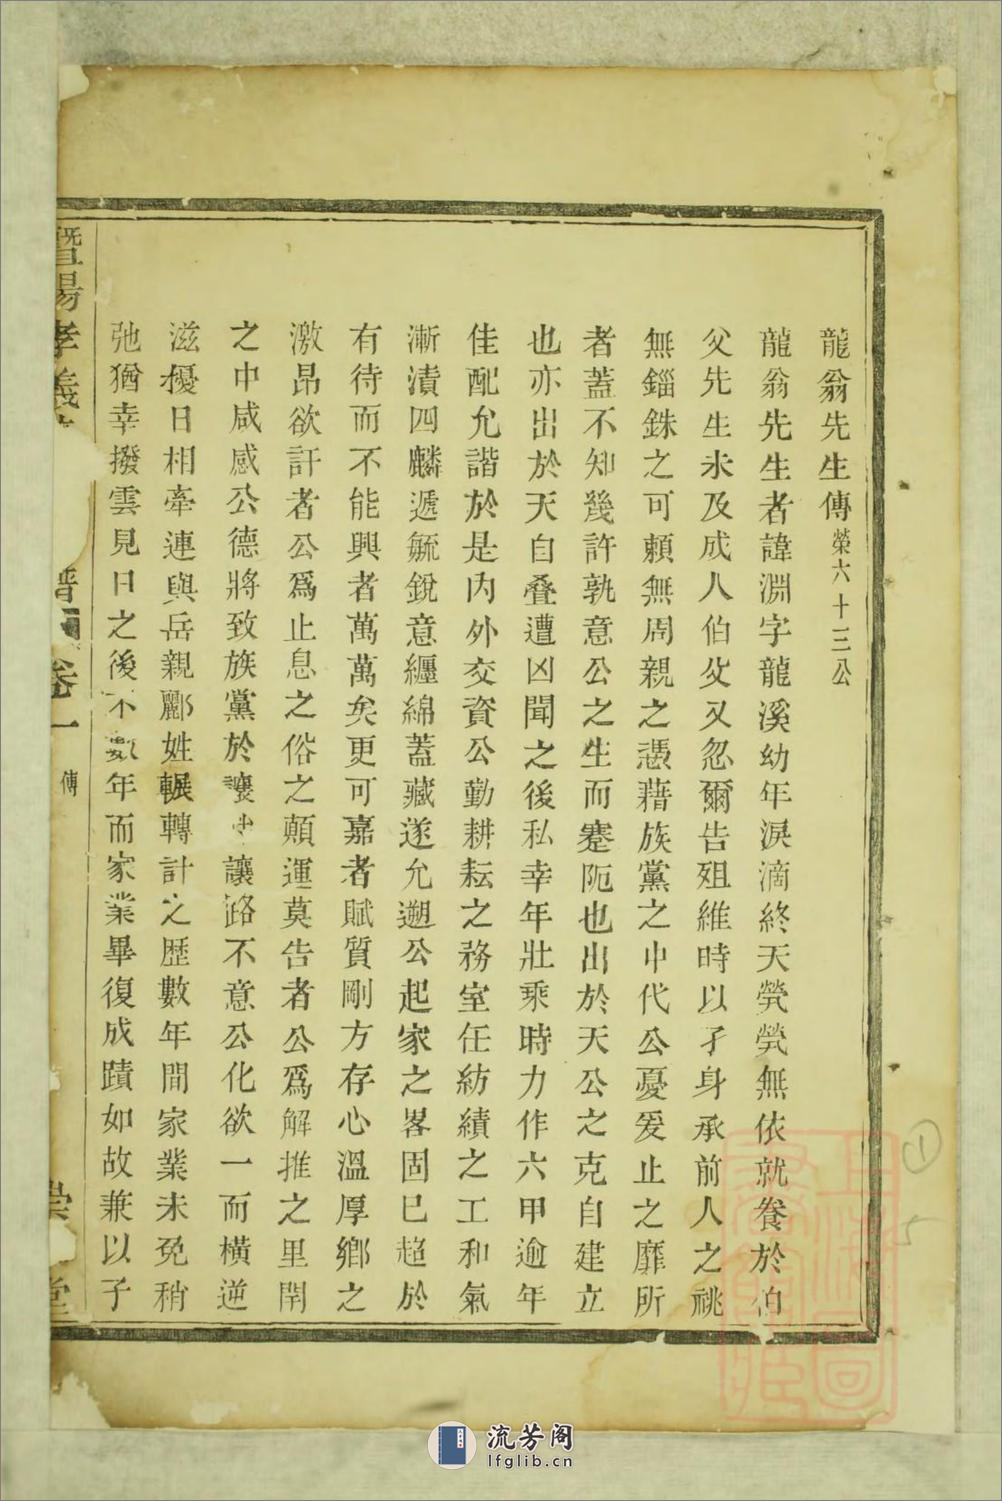 龍翁先生傳榮六十三公
龍翁先生者諱淵字龍溪幼年淚滴終天煢煢無依就養於伯
父先生未及成人伯父又忽爾告殂維時以孑身承前人之祧
無錙銖之可賴無周親之憑藉族黨之中代公憂爰止之靡所
者蓋不知幾許孰意公之生而蹇阨也出於天公之克自建立
也亦出於天自叠遭凶聞之後私幸年壯乘時力作六甲逾年
佳配允諧於是內外交資公勤耕耘之務室任紡績之工和氣
漸漬四麟遞毓銳意纏綿蓋藏遂允遡公起家之畧固已超於
有待而不能興者萬萬矣更可嘉者賦質剛方存心溫厚鄉之
激昂欲訐者公爲止息之俗之顛運莫告者公爲解推之里閈
之中咸感公德將致族黨於讓中讓路不意公化欲一而橫逆
滋擾日相牽連與岳親酈姓輾轉計之歷數年間家業未免稍
弛猶幸撥雲見日之後不數年而家業畢復成蹟如故兼以子
暨陽孝義
譜 卷一 傳
崇 堂
① 5
流芳阁
lfglib.cn